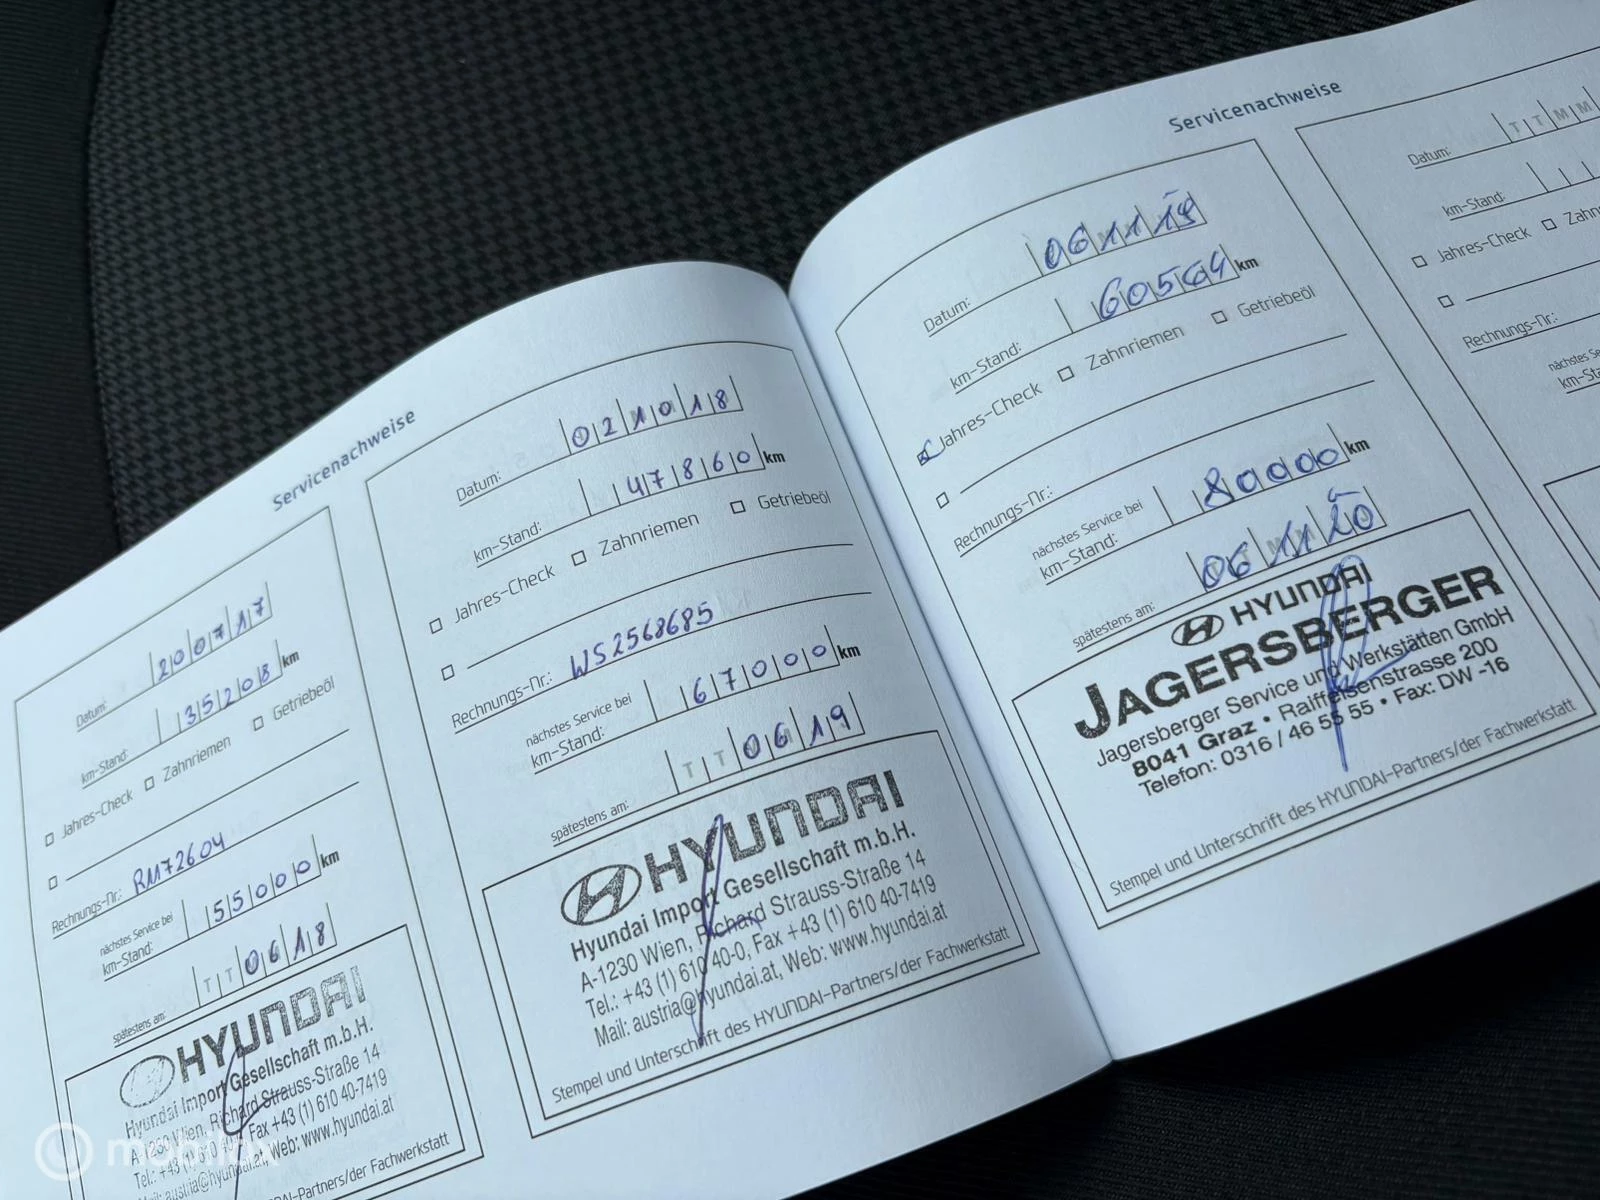 Servicenachweise
Datum: 200717
km-Stand: 35208 km
Jahres-Check Zahnriemen Getriebeöl
Rechnungs-Nr.: RM72604
nächstes Service bei
km-Stand: 55000 km
spätestens am: TT0618
HYUNDAI
Hyundai Import Gesellschaft m.b.H.
A-1230 Wien, Richard Strauss-Straße 14
Tel.: +43 (1) Fax +43 (1) 610 40-7419
Mail: austria@hyundai.at, Web: www.hyundai.at
des HYUNDAI-Partners/der Fachwerkstatt
Datum: 021018
km-Stand: 47860 km
Jahres-Check Zahnriemen Getriebeöl
Rechnungs-Nr.: WS2568685
nächstes Service bei
km-Stand: 67000 km
spätestens am: TT0619
HYUNDAI
Hyundai Import Gesellschaft m.b.H.
A-1230 Wien, Richard Strauss-Straße 14
Tel.: +43 (1) 610 40-0, Fax +43 (1) 610 40-7419
Mail: austria@hyundai.at, Web: www.hyundai.at
Stempel und Unterschrift des HYUNDAI-Partners/der Fachwerkstatt
Servicenachweise
Datum: 0611
km-Stand: 60564 km
Jahres-Check Zahnriemen Getriebeöl
Rechnungs-Nr.:
nächstes Service bei
km-Stand: 80000 km
spätestens am: 061120
HYUNDAI
JAGERSBERGER
Jagersberger Service und Werkstätten GmbH
8041 Graz • Raiffeisenstrasse 200
Telefon: 0316 / 46 55 55 • Fax: DW -16
Stempel und Unterschrift des HYUNDAI-Partners/der Fachwerkstatt
Datum: TTMM
km-Stand:
Jahres-Check
Rechnungs-Nr.:
nächstes